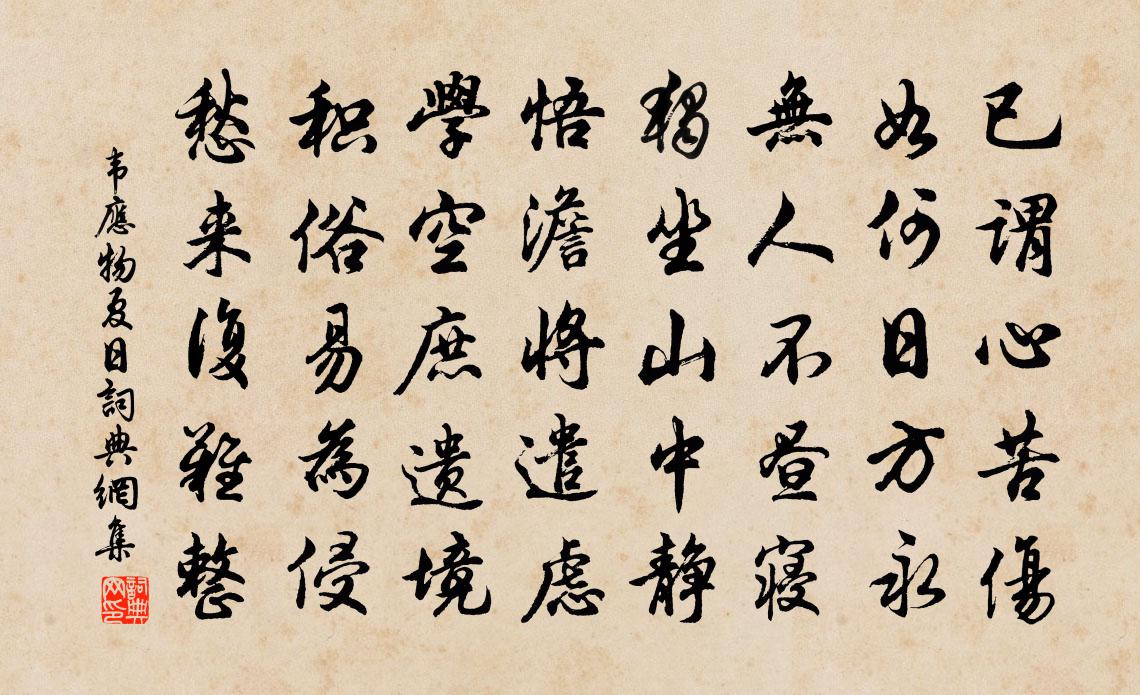 已謂心苦傷
如何日方永
無人不昼寝
独坐山中静
悟澹将遣虑
學空庶遗境
积俗易為侵
愁来復難整
韦應物夏日詞典網集
詞典网印